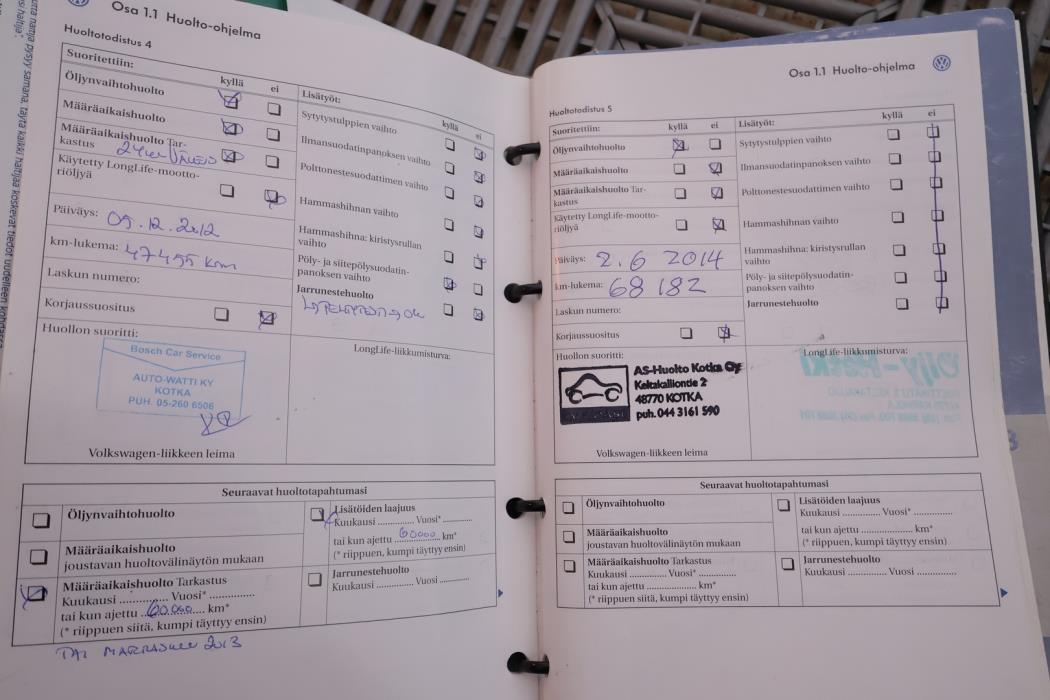 Osa 1.1 Huolto-ohjelma
Huoltotodistus 4
Suoritettiin:
kyllä
ei
Öljynvaihtohuolto
Määräaikaishuolto
Määräaikaishuolto Tar-
kastus
Käytetty LongLife-mootto-
riöljyä
Päiväys: 09.12.2012
km-lukema: 47455 km
Laskun numero:
Korjaussuositus
Huollon suoritti:
Bosch Car Service
AUTO-WATTI KY
KOTKA
PUH. 05-260 6506
Volkswagen-liikkeen leima
Lisätyöt:
kyllä
ei
Sytytystulppien vaihto
Ilmansuodatinpanoksen vaihto
Polttonestesuodattimen vaihto
Hammashihnan vaihto
Hammashihna: kiristysrullan
vaihto
Pöly- ja siitepölysuodatin-
panoksen vaihto
Jarrunestehuolto
LongLife-liikkumisturva:
Seuraavat huoltotapahtumasi
Öljynvaihtohuolto
Määräaikaishuolto
joustavan huoltovälinäytön mukaan
Määräaikaishuolto Tarkastus
Kuukausi ............. Vuosi* .............
tai kun ajettu 60.000 km*
(* riippuen siitä, kumpi täyttyy ensin)
Lisätöiden laajuus
Kuukausi ............ Vuosi* ............
tai kun ajettu 60000 km*
(* riippuen, kumpi täyttyy ensin)
Jarrunestehuolto
Kuukausi ............ Vuosi ............
TAI MARRASKUU 2013
Osa 1.1 Huolto-ohjelma
Huoltotodistus 5
Suoritettiin:
kyllä
ei
Öljynvaihtohuolto
Määräaikaishuolto
Määräaikaishuolto Tar-
kastus
Käytetty LongLife-mootto-
riöljyä
Päiväys: 2.6 2014
km-lukema: 68 182
Laskun numero:
Korjaussuositus
Huollon suoritti:
AS-Huolto Kotka Oy
Keltakalliontie 2
48770 KOTKA
puh. 044 3161 590
Volkswagen-liikkeen leima
Lisätyöt:
kyllä
ei
Sytytystulppien vaihto
Ilmansuodatinpanoksen vaihto
Polttonestesuodattimen vaihto
Hammashihnan vaihto
Hammashihna: kiristysrullan
vaihto
Pöly- ja siitepölysuodatin-
panoksen vaihto
Jarrunestehuolto
LongLife-liikkumisturva:
Seuraavat huoltotapahtumasi
Öljynvaihtohuolto
Määräaikaishuolto
joustavan huoltovälinäytön mukaan
Määräaikaishuolto Tarkastus
Kuukausi ............. Vuosi* .............
tai kun ajettu ..................... km*
(* riippuen siitä, kumpi täyttyy ensin)
Lisätöiden laajuus
Kuukausi ............. Vuosi* .............
tai kun ajettu ..................... km*
(* riippuen, kumpi täyttyy ensin)
Jarrunestehuolto
Kuukausi ............. Vuosi .............